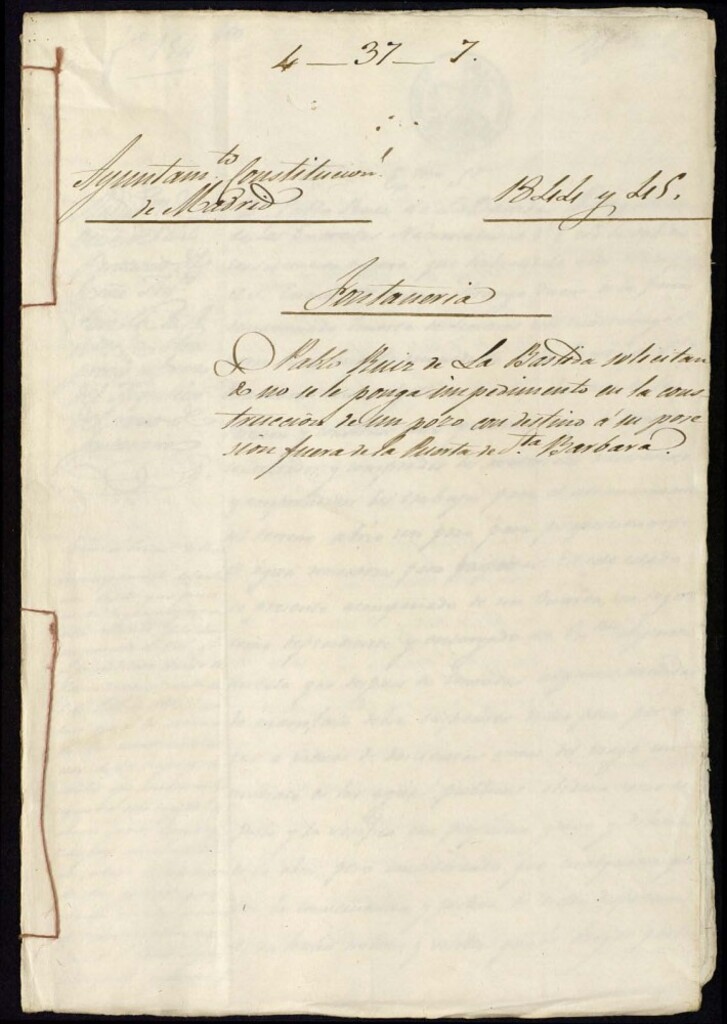 4 — 37 — 7.
Ayuntam.to Constitucion.l
de Madrid
1844 y 45.
Fontaneria
D Pablo Ruiz de La Bastida solicitan
do no se le ponga impedimento en la cons-
trucción de un pozo con destino á su pose
sion fuera de la Puerta de S.ta Barbara.